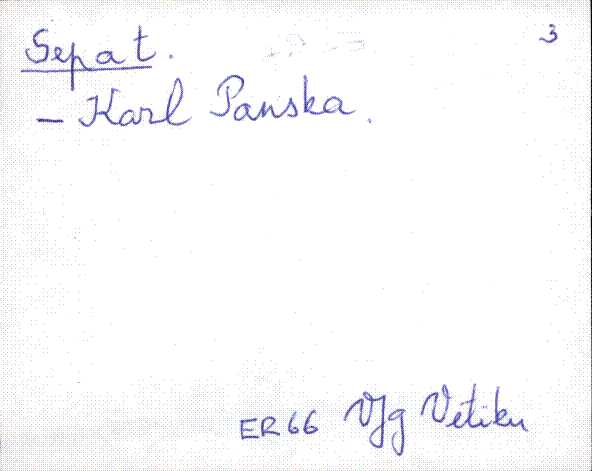 3
Sepat.
- Karl Panska.
ER 66 Vjg Vetiku